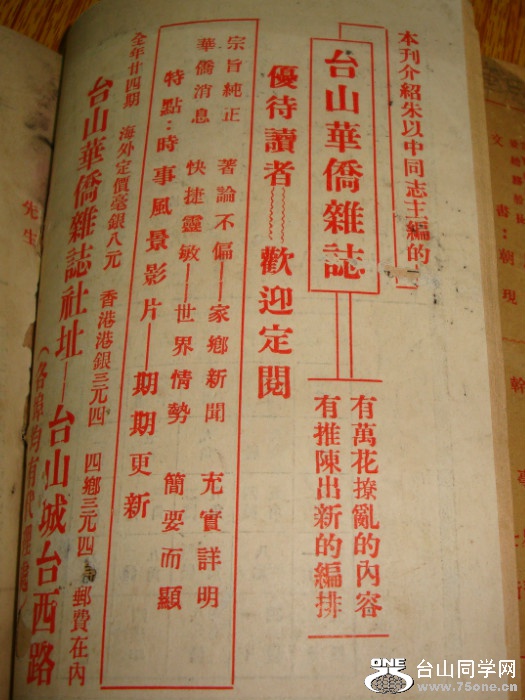 本刊介紹朱以中同志主編的
台山華僑雜誌
有萬花撩亂的內容
有推陳出新的編排
優待讀者 歡迎定閱
宗旨純正 著論不偏 家鄉新聞 充實詳明
華僑消息 快捷靈敏 世界情勢 簡要而顯
特點：時事風景影片 期期更新
全年廿四期 海外定價毫銀八元 香港港銀三元四 四鄉三元四 郵費在內
台山華僑雜誌社址 台山城台西路
（各埠均有代
先生
文 書：朝 現
幹
ONE
台山同学网
www.75one.cn